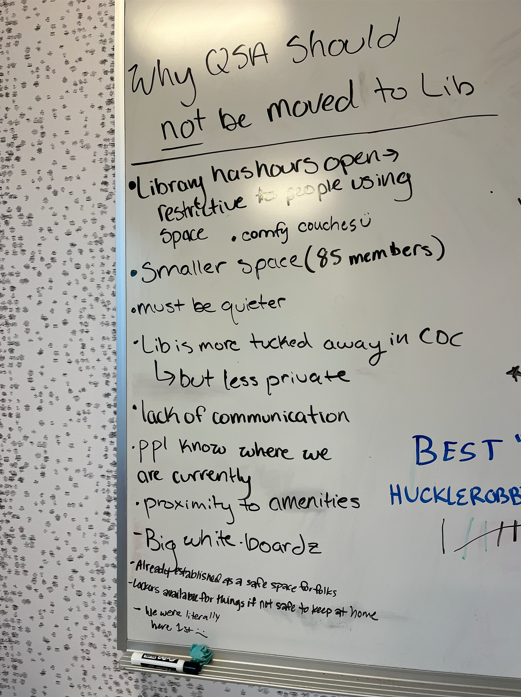 Why QSA Should
not be moved to Lib
• Library has hours open →
restrictive to people using
space • comfy couches ü
• Smaller space (85 members)
• must be quieter
• Lib is more tucked away in CDC
↳ but less private
• lack of communication
• ppl know where we
are currently
• proximity to amenities
- Big white-boardz
- Already established as a safe space for folks
- Lockers available for things if not safe to keep at home
- We were literally
here 1st :)
BEST
HUCKLEROBB